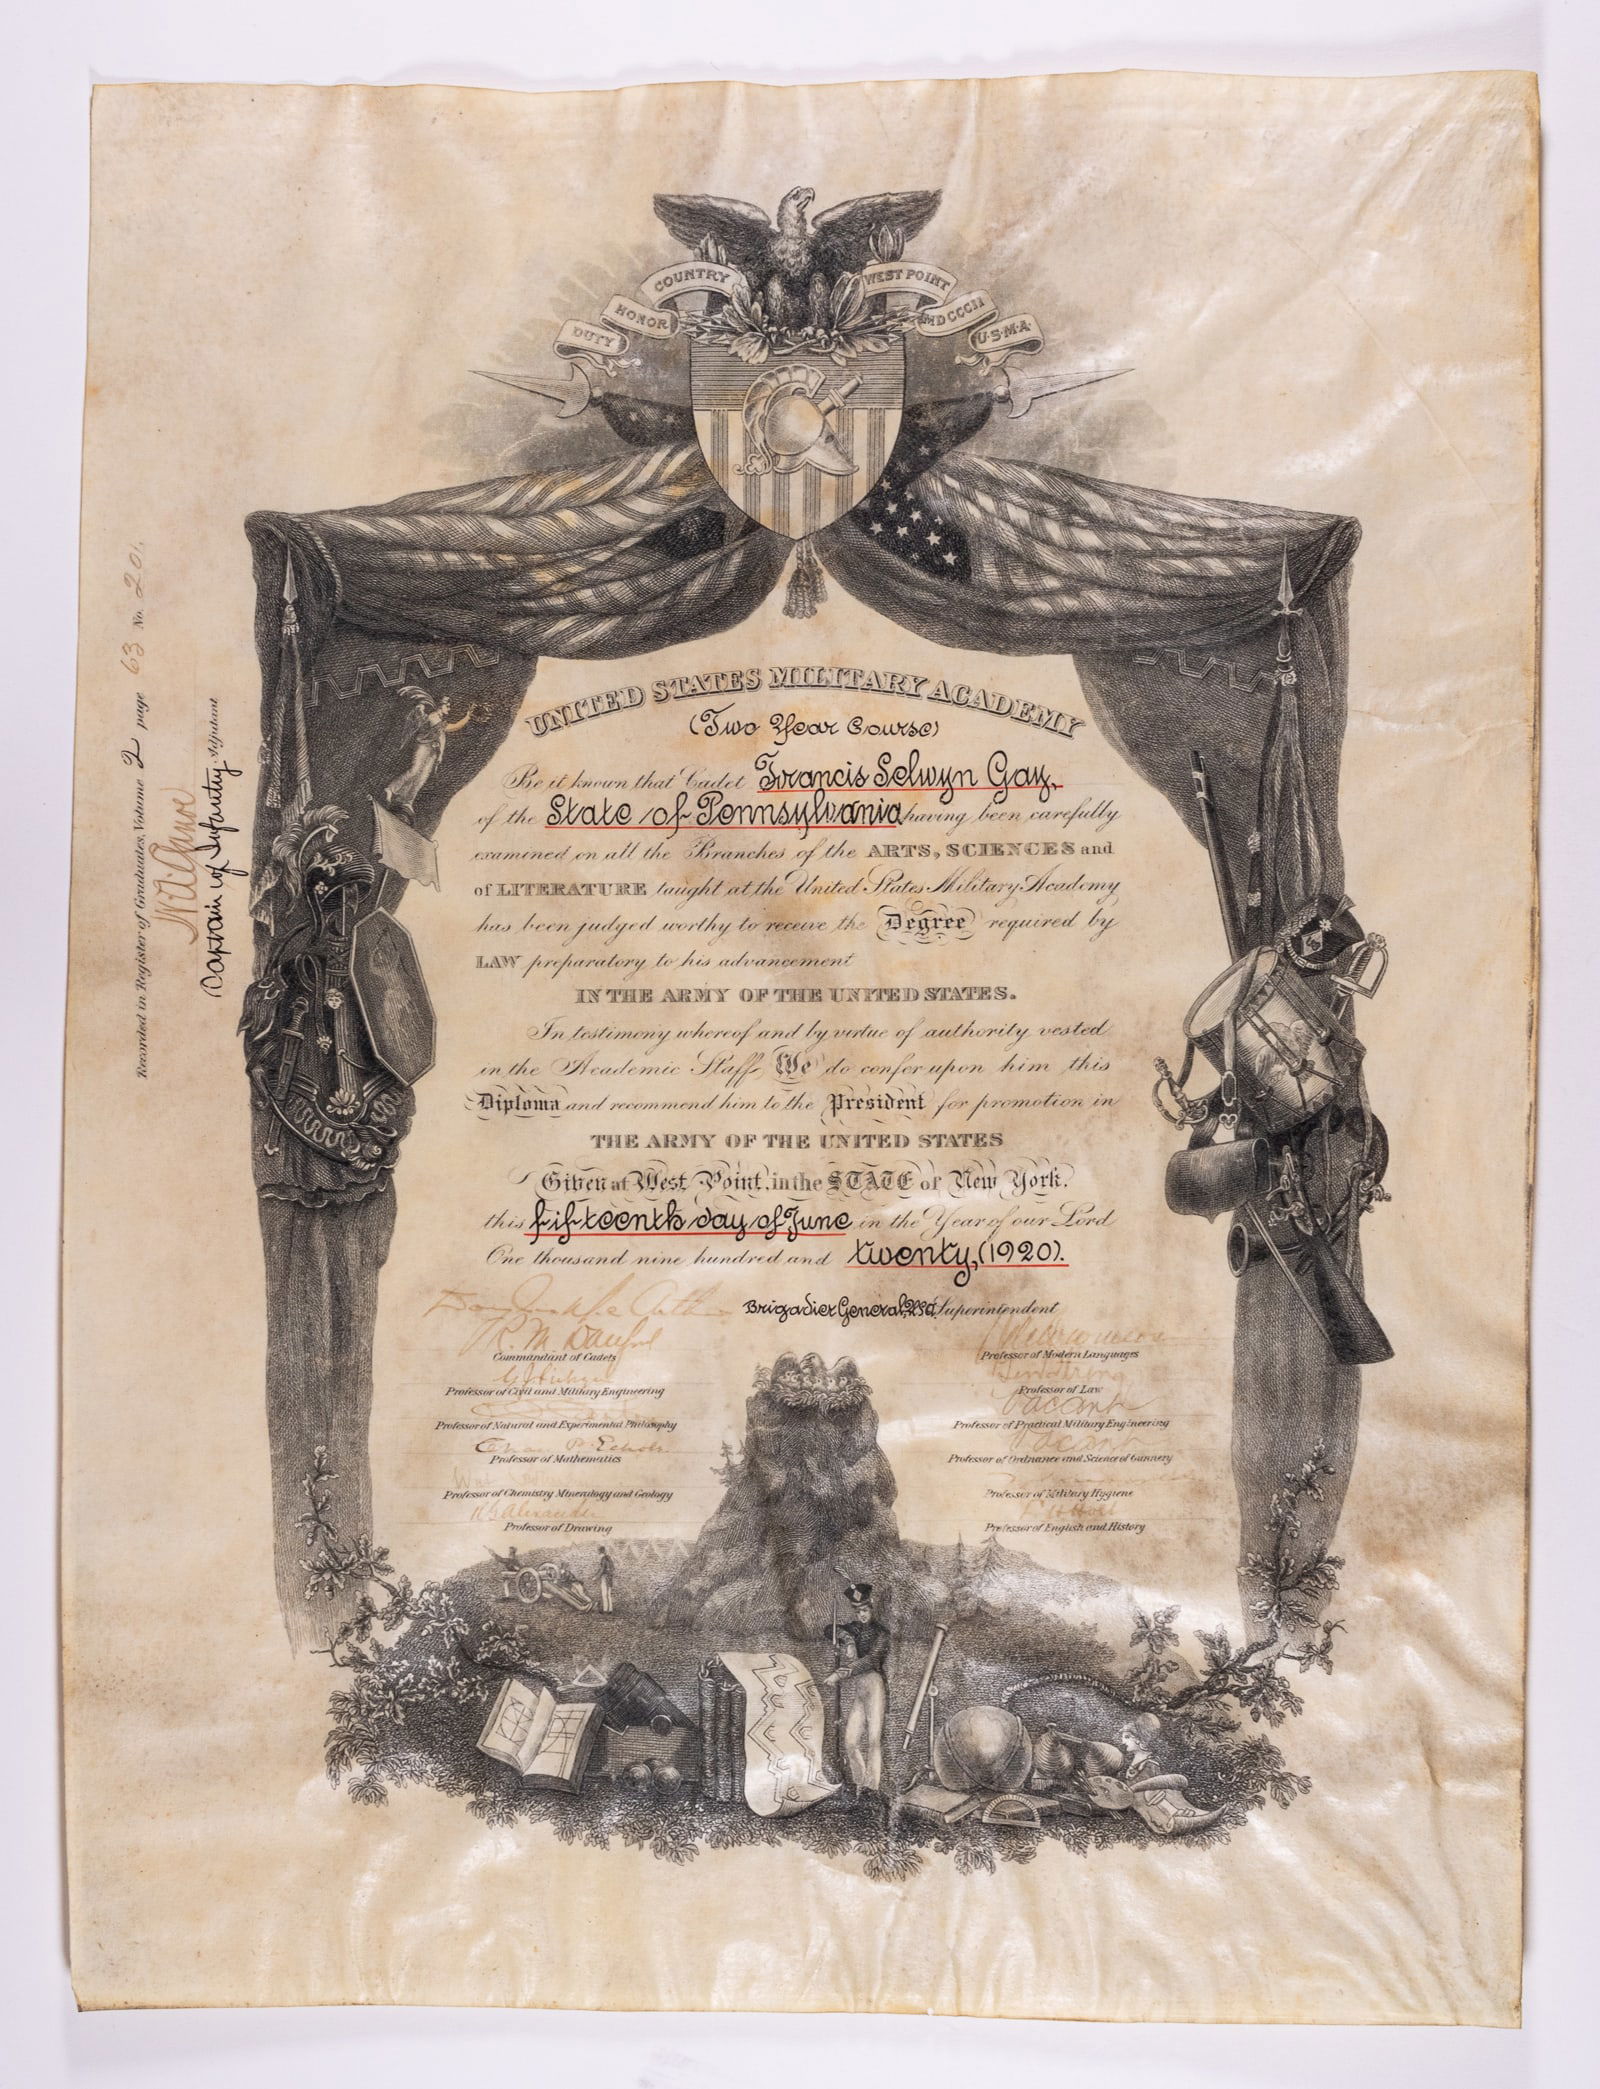 DUTY HONOR COUNTRY WEST POINT MDCCCII U.S.M.A.
UNITED STATES MILITARY ACADEMY
(Two Year Course)
Be it known that Cadet Francis Selwyn Gay,
of the State of Pennsylvania having been carefully
examined on all the Branches of the ARTS, SCIENCES and
of LITERATURE taught at the United States Military Academy,
has been judged worthy to receive the Degree required by
LAW preparatory to his advancement
IN THE ARMY OF THE UNITED STATES.
In testimony whereof and by virtue of authority vested
in the Academic Staff, We do confer upon him this
Diploma and recommend him to the President for promotion in
THE ARMY OF THE UNITED STATES
Given at West Point, in the STATE of New York.
this fifteenth day of June in the Year of our Lord
One thousand nine hundred and twenty, (1920).
Brigadier General, Superintendent
R. M. Danford
Commandant of Cadets
Professor of Civil and Military Engineering
Professor of Natural and Experimental Philosophy
Chas P. Echols
Professor of Mathematics
Professor of Chemistry Mineralogy and Geology
R G Alexander
Professor of Drawing
Professor of Modern Languages
Professor of Law
Vacant
Professor of Practical Military Engineering
Vacant
Professor of Ordnance and Science of Gunnery
Professor of Military Hygiene
Holt
Professor of English and History
Recorded in Register of Graduates, Volume 2 page 63 No. 201.
Captain of Infantry Adjutant